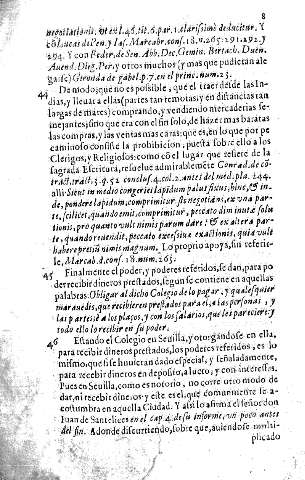 8
negotiationis, vt in l. 46. tit. 6. par. 1. clarissimè deducitur. Y
Lucas de Pen. y Ias. Marc. abr. cons. 18. v. 265. 291. 292. y
294. Y con Feder. de Sen. Abb. Dec. Gemin. Bertach. Duen.
Auend. Dirg. Per. y otros muchos (y mas que pudieran ale
garse) Gironda de gabel. p. 7. en el princ. num. 23.
44 De modo, que no es possible, que el traer desde las In-
dias, y lleuar a ellas (partes tan remotas, y en distancias tan
largas de mares) comprando, y vendiendo mercaderias se-
mejantes, sino que era con el fin solo, de hazer mas baratas
las compras, y las ventas mas caras: que es, en lo que por pe
caminoso consiste la prohibicion, puesta sobre ello a los
Clerigos, y Religiosos: como cõ el lugar que refiere de la
sagrada Escritura, resuelue admirablemẽte Conrad. de cõ-
tract. tract. 3. q. 52. conclus. 4. col. 2. antes del med. pla. 244.
alli: Sicut in medio congeriei lapidum palus fixus, hinc, & in-
de, pondere lapidum, comprimitur, sic negotians, ex vna par-
te, scilicet, quando emit, comprimitur, peccato diminutæ solu
tionis, pro quanto vult nimis parum dare: & ex altera par
te, quando vendit, peccato excessiuæ exactionis, quia vult
habere pretiũ nimis magnum. Lo proprio apoya, sin referir-
le, Marc. ab d. cons. 18. num. 265.
45 Finalmente el poder, y poderes referidos, se dan, para po
der recibir dineros prestados, segun se contiene en aquellas
palabras. Obligar al dicho Colegio de lo pagar, y qualesquier
marauedis, que recibieren prestados para el, a las personas, y
las partes, è a los plaços, y con los salarios, que les pareciere: y
todo ello lo recibir en su poder.
46 Estando el Colegio en Seuilla, y otorgandose en ella,
para recibir dineros prestados, los poderes referidos, es lo
mismo, que si se huuieran dado especial, y señaladamente,
para recebir dineros en deposito, a lucro, y con interesses.
Pues en Seuilla, como es notorio, no corre otro modo de
dar, ni recebir dineros: y este es el, que comunmente se a-
costumbra en aquella Ciudad. Y assi lo afirma el señor don
Iuan de Santelices en el cap. 4. de su informe, vn poco antes
del fin. Adonde discurriendo, sobre que, auiendose multi-
plicado